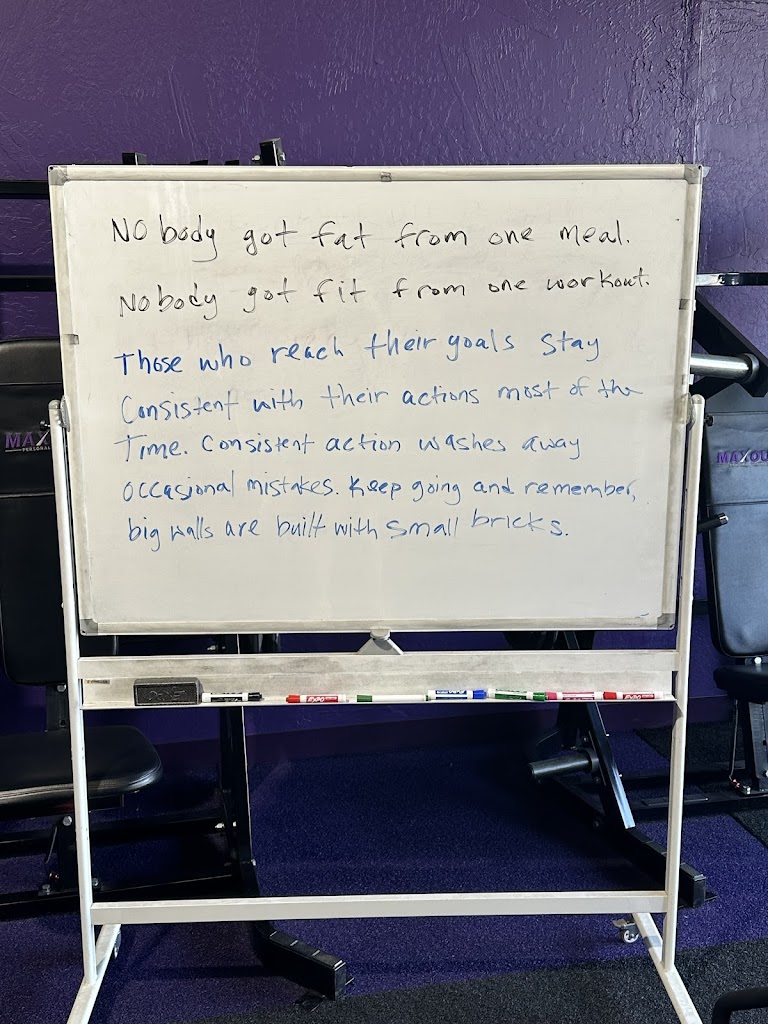 Nobody got fat from one meal.
Nobody got fit from one workout.
Those who reach their goals stay
Consistent with their actions most of the
Time. Consistent action washes away
occasional mistakes. Keep going and remember,
big walls are built with small bricks.
MAX
PERSONAL
MAXOU
EXPO